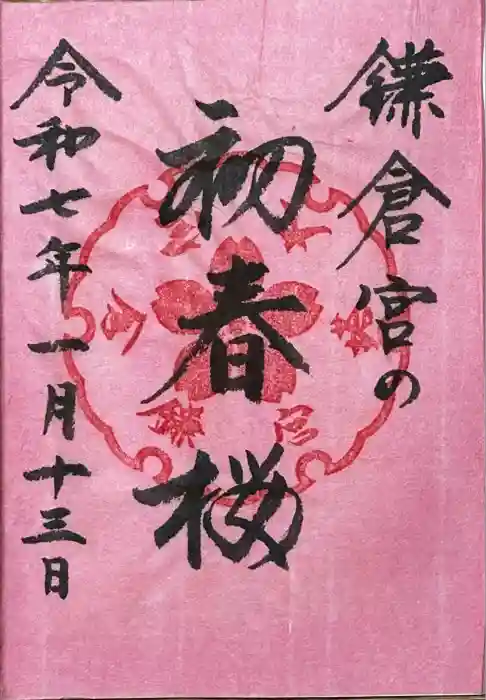 鎌倉宮の
初春桜
令和七年一月十三日